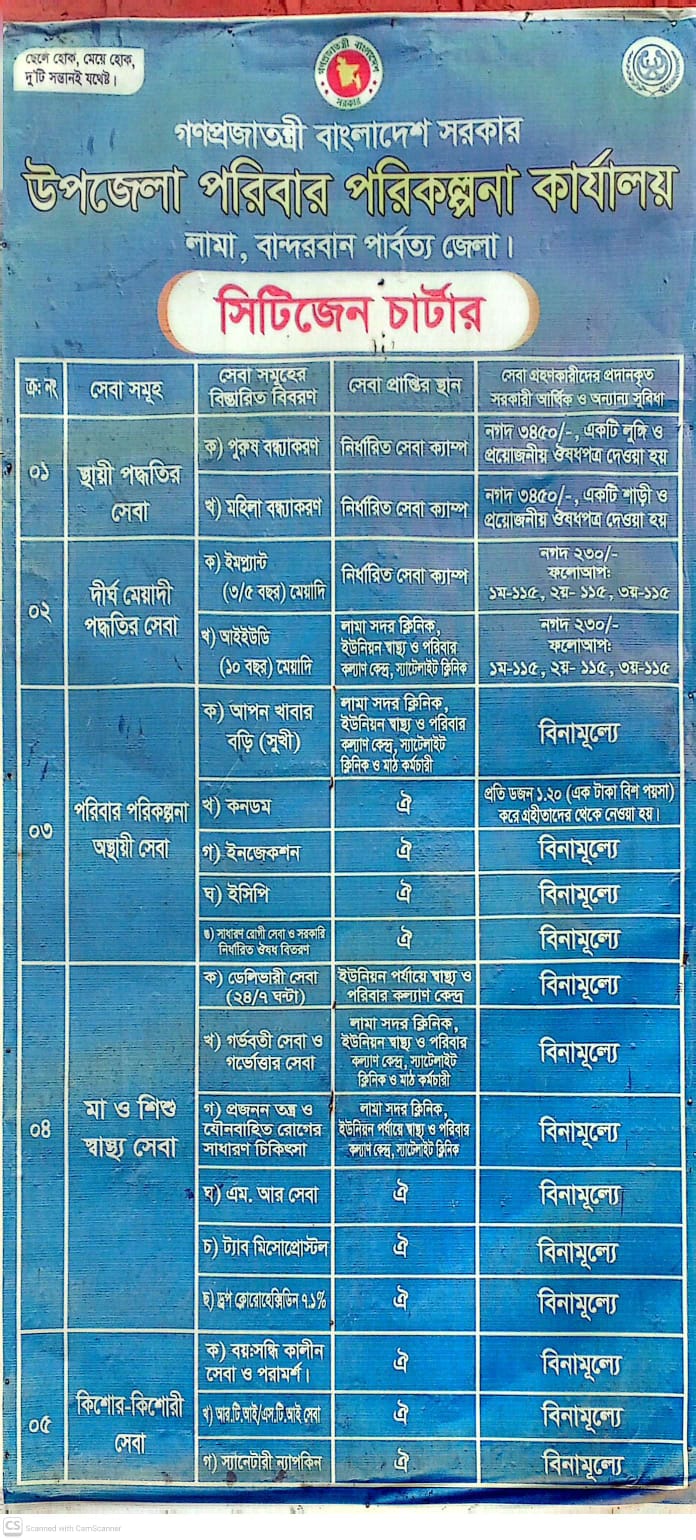 ছেলে হোক, মেয়ে হোক,
দু'টি সন্তানই যথেষ্ট।
গণপ্রজাতন্ত্রী বাংলাদেশ
সরকার
গণপ্রজাতন্ত্রী বাংলাদেশ সরকার
উপজেলা পরিবার পরিকল্পনা কার্যালয়
লামা, বান্দরবান পার্বত্য জেলা।
সিটিজেন চার্টার
ক্র: নং
সেবা সমূহ
সেবা সমূহের
বিস্তারিত বিবরণ
সেবা প্রাপ্তির স্থান
সেবা গ্রহণকারীদের প্রদানকৃত
সরকারী আর্থিক ও অন্যান্য সুবিধা
০১
স্থায়ী পদ্ধতির
সেবা
ক) পুরুষ বন্ধ্যাকরণ
নির্ধারিত সেবা ক্যাম্প
নগদ ৩৪৫০/-, একটি লুঙ্গি ও
প্রয়োজনীয় ঔষধপত্র দেওয়া হয়
খ) মহিলা বন্ধ্যাকরণ
নির্ধারিত সেবা ক্যাম্প
নগদ ৩৪৫০/-, একটি শাড়ী ও
প্রয়োজনীয় ঔষধপত্র দেওয়া হয়
০২
দীর্ঘ মেয়াদী
পদ্ধতির সেবা
ক) ইমপ্ল্যান্ট
(৩/৫ বছর) মেয়াদি
নির্ধারিত সেবা ক্যাম্প
নগদ ২৩০/-
ফলোআপ:
১ম-১১৫, ২য়- ১১৫, ৩য়-১১৫
খ) আইইউডি
(১০ বছর) মেয়াদি
লামা সদর ক্লিনিক,
ইউনিয়ন স্বাস্থ্য ও পরিবার
কল্যাণ কেন্দ্র, স্যাটেলাইট ক্লিনিক
নগদ ২৩০/-
ফলোআপ:
১ম-১১৫, ২য়- ১১৫, ৩য়-১১৫
০৩
পরিবার পরিকল্পনা
অস্থায়ী সেবা
ক) আপন খাবার
বড়ি (সুখী)
লামা সদর ক্লিনিক,
ইউনিয়ন স্বাস্থ্য ও পরিবার
কল্যাণ কেন্দ্র, স্যাটেলাইট
ক্লিনিক ও মাঠ কর্মচারী
বিনামূল্যে
খ) কনডম
ঐ
প্রতি ডজন ১.২০ (এক টাকা বিশ পয়সা)
করে গ্রহীতাদের থেকে নেওয়া হয়।
গ) ইনজেকশন
ঐ
বিনামূল্যে
ঘ) ইসিপি
ঐ
বিনামূল্যে
ঙ) সাধারণ রোগী সেবা ও সরকারি
নির্ধারিত ঔষধ বিতরণ
ঐ
বিনামূল্যে
০৪
মা ও শিশু
স্বাস্থ্য সেবা
ক) ডেলিভারী সেবা
(২৪/৭ ঘন্টা)
ইউনিয়ন পর্যায়ে স্বাস্থ্য ও
পরিবার কল্যাণ কেন্দ্র
বিনামূল্যে
খ) গর্ভবতী সেবা ও
গর্ভোত্তার সেবা
লামা সদর ক্লিনিক,
ইউনিয়ন স্বাস্থ্য ও পরিবার
কল্যাণ কেন্দ্র, স্যাটেলাইট
ক্লিনিক ও মাঠ কর্মচারী
বিনামূল্যে
গ) প্রজনন তন্ত্র ও
যৌনবাহিত রোগের
সাধারণ চিকিৎসা
লামা সদর ক্লিনিক,
ইউনিয়ন পর্যায়ে স্বাস্থ্য ও পরিবার
কল্যাণ কেন্দ্র, স্যাটেলাইট ক্লিনিক
বিনামূল্যে
ঘ) এম. আর সেবা
ঐ
বিনামূল্যে
চ) ট্যাব মিসোপ্রোস্টল
ঐ
বিনামূল্যে
ছ) ড্রপ ক্লোরোহেক্সিডিন ৭.১%
ঐ
বিনামূল্যে
০৫
কিশোর-কিশোরী
সেবা
ক) বয়:সন্ধি কালীন
সেবা ও পরামর্শ।
ঐ
বিনামূল্যে
খ) আর.টি.আই/এস.টি.আই সেবা
ঐ
বিনামূল্যে
গ) স্যানেটারী ন্যাপকিন
ঐ
বিনামূল্যে
CS Scanned with CamScanner